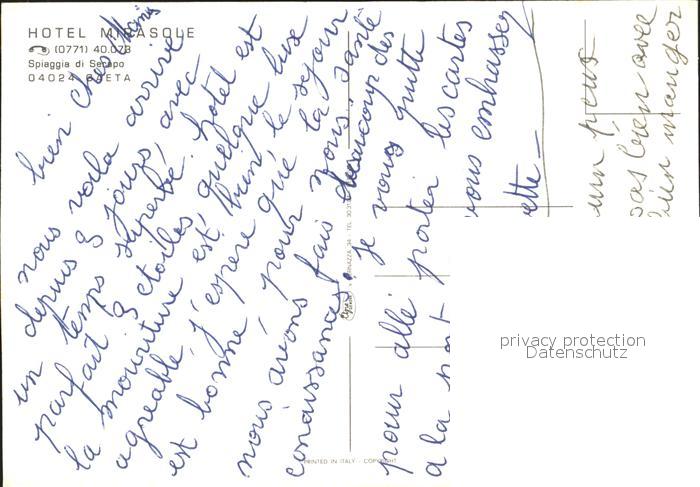 HOTEL MIRASOLE
(0771) 40.073
Spiaggia di Serapo
04024 GAETA
bien chers amis
nous voila arrivé
depuis 3 jours, avec
un temps superbe, hotel est
parfait 3 etoiles, quelque luxe
la nourriture est bien, le sejour
agreable, j'espere que la santé
est bonne, pour nous
nous avons fais beaucoup des
connaissances. je vous quitte
pour allé porter les cartes
a la post
vous embrassez
ette
un peus
pas bien avec
manger
PRINTED IN ITALY - COPYRIGHT
privacy protection
Datenschutz